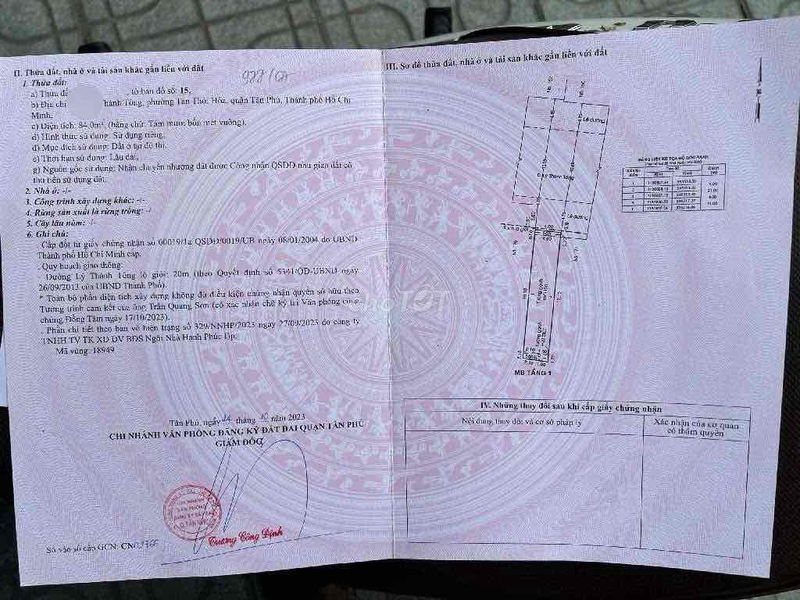 II. Thửa đất, nhà ở và tài sản khác gắn liền với đất
1. Thửa đất:
a) Thửa đấ , tờ bản đồ số: 15,
b) Địa chỉ hánh Tông, phường Tân Thới Hòa, quận Tân Phú, Thành phố Hồ Chí
Minh,
c) Diện tích: 84.0m², (bằng chữ: Tám mươi bốn mét vuông),
d) Hình thức sử dụng: Sử dụng riêng,
đ) Mục đích sử dụng: Đất ở tại đô thị,
e) Thời hạn sử dụng: Lâu dài,
g) Nguồn gốc sử dụng: Nhận chuyển nhượng đất được Công nhận QSDĐ như giao đất có
thu tiền sử dụng đất.
2. Nhà ở: -/-
3. Công trình xây dựng khác: -/-
4. Rừng sản xuất là rừng trồng: -/-
5. Cây lâu năm: -/-
6. Ghi chú:
Cấp đổi từ giấy chứng nhận số 00019/1a QSDĐ/0019/UB ngày 08/01/2004 do UBND
Thành phố Hồ Chí Minh cấp.
. Quy hoạch giao thông:
Đường Lý Thánh Tông lộ giới: 20m (theo Quyết định số 5341/QĐ-UBND ngày
26/09/2013 của UBND Thành phố).
* Toàn bộ phần diện tích xây dựng không đủ điều kiện chứng nhận quyền sở hữu theo
Tương trình cam kết của ông Trần Quang Sơn (có xác nhận chữ ký tại Văn phòng công
chứng Đồng Tâm ngày 17/10/2023).
. Phần chi tiết theo bản vẽ hiện trạng số 329/NNHP/2023 ngày 27/09/2023 do công ty
TNHH TV TK XD DV BĐS Ngôi Nhà Hạnh Phúc lập.
Mã vùng: 18949
Tân Phú, ngày tháng 10 năm 2023
CHI NHÁNH VĂN PHÒNG ĐĂNG KÝ ĐẤT ĐAI QUẬN TÂN PHÚ
GIÁM ĐỐC
Trương Công Định
Số vào sổ cấp GCN: CN
III. Sơ đồ thửa đất, nhà ở và tài sản khác gắn liền với đất
MB TẦNG 1
IV. Những thay đổi sau khi cấp giấy chứng nhận
Nội dung thay đổi và cơ sở pháp lý
Xác nhận của cơ quan
có thẩm quyền